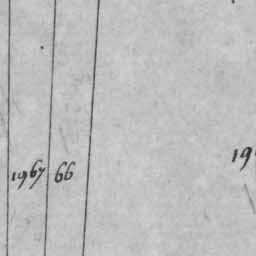 1967 66 19